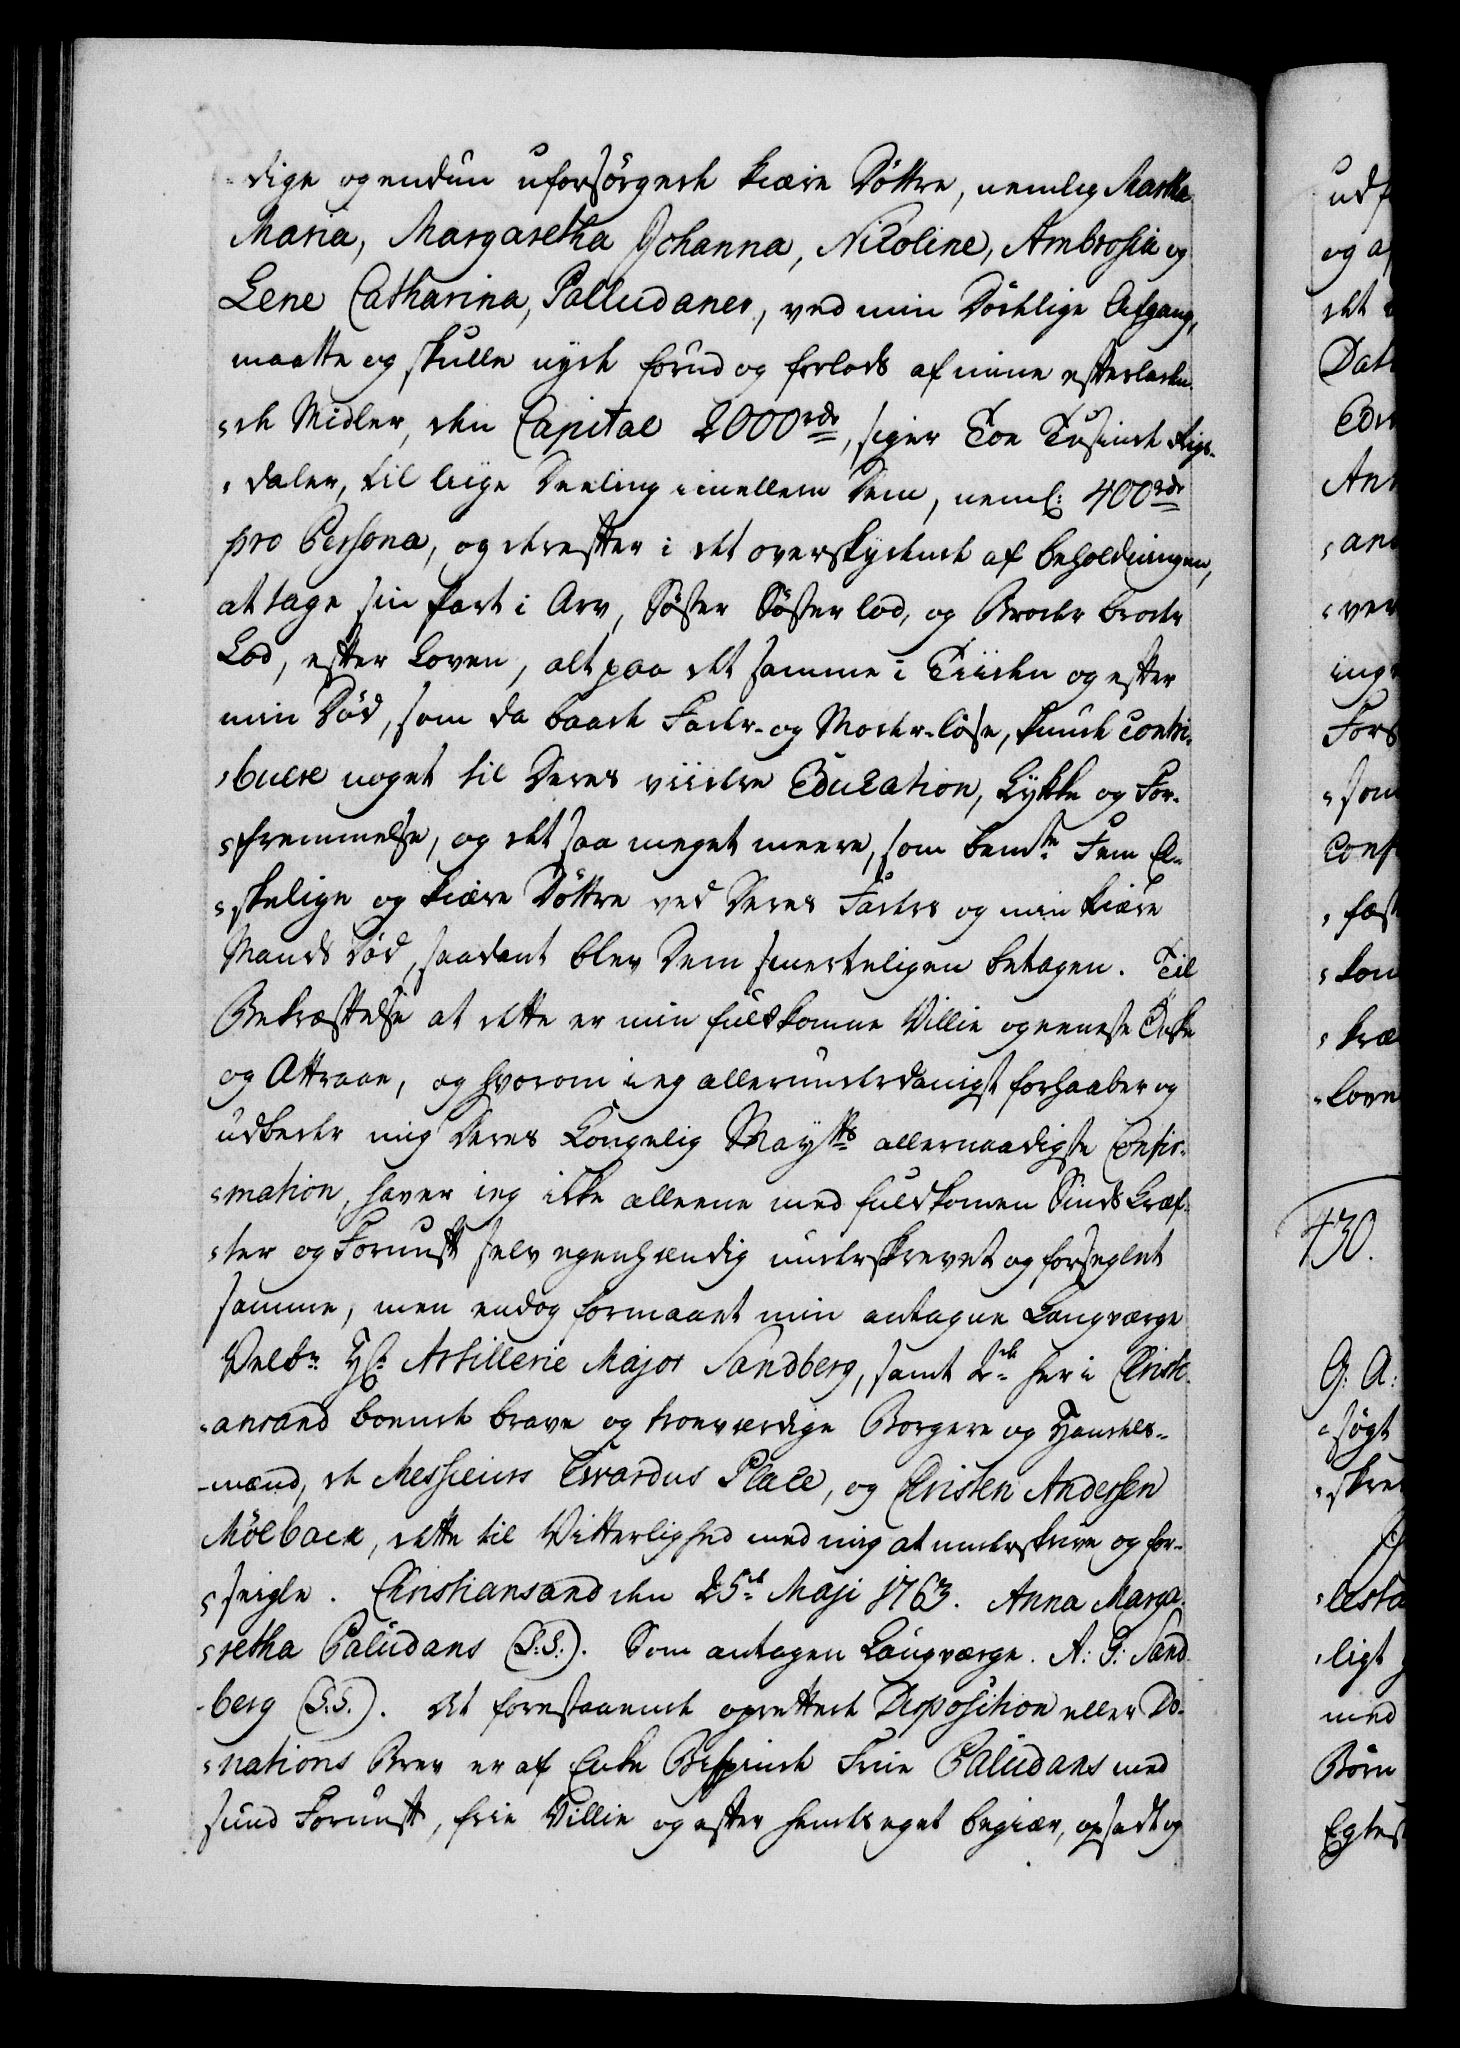 -dige og endnu uforsörgede kiære Döttre, nemlig Martha
Maria, Margaretha Johanna, Nicoline, Ambrosia og
Lene Catharina, Palludaner, ved min Dödelige Afgang,
maatte og skulle nyde forud og forlods af mine efterladen-
-de Midler, den Capital 2000 rdr, siger Toe Tusinde Rigs-
-daler, til liige Deeling imellem Dem, neml: 400 rdr
pro Persona, og derefter i det overskydende af beholdningen,
at tage sin Part i Arv, Söster Söster lod, og Broder broder
Lod, efter Loven, alt paa det samme i Tiiden og efter
min Död, som da baade Fader- og Moder-löse, kunde contri-
-buere noget til Deres viidere Education, Lykke og For-
-fremmelse, og det saa meget meere, som bemte Fem El-
-skelige og kiære Döttre ved Deres Faders og min kiære
Mands Död, saadant blev Dem smerteligen betagen. Til
Bekræftelse at dette er min fuldkomne Villie og eeneste Önske
og Attraae, og hvorom jeg allerunderdanigst forhaaber og
udbeder mig Deres Kongelig Mayts allernaadigste Confir-
-mation, haver jeg ikke alleene med fuldkomen Sinds Kræf-
-ter og Fornuft selv egenhændig underskrevet og forseglet
samme, men endog formaaet min antagne Laugværge
Velbn Hr Artillerie Major Sandberg, samt 2de her i Christi-
-ansand boende brave og troeværdige Borgere og Handels-
-mænd, de Messieurs Evardus Place, og Christen Andersen
Mölback, dette til Vitterlighed med mig at underskrive og for-
-seigle. Christiansand den 25de Maji 1763. Anna Marga-
-retha Paludans (L.S.). Som antagen Laugværge. A: G: Sand-
-berg (L.S.). Det forestaaende oprettede Disposition eller Do-
-nations Brev er af Enke Bispinde Frue Paludans med
sund Fornuft, frie Villie og efter hendes eget begiær, opsadt og
udf
og af
det
Dat
Edv
An
-and
-ver
ing
Fors
-som
Conf
-fæst
-kon
-kræ
-love
430.
G: A:
-søgt
-skre
-testa
-ligt
med
Börn
Egtes